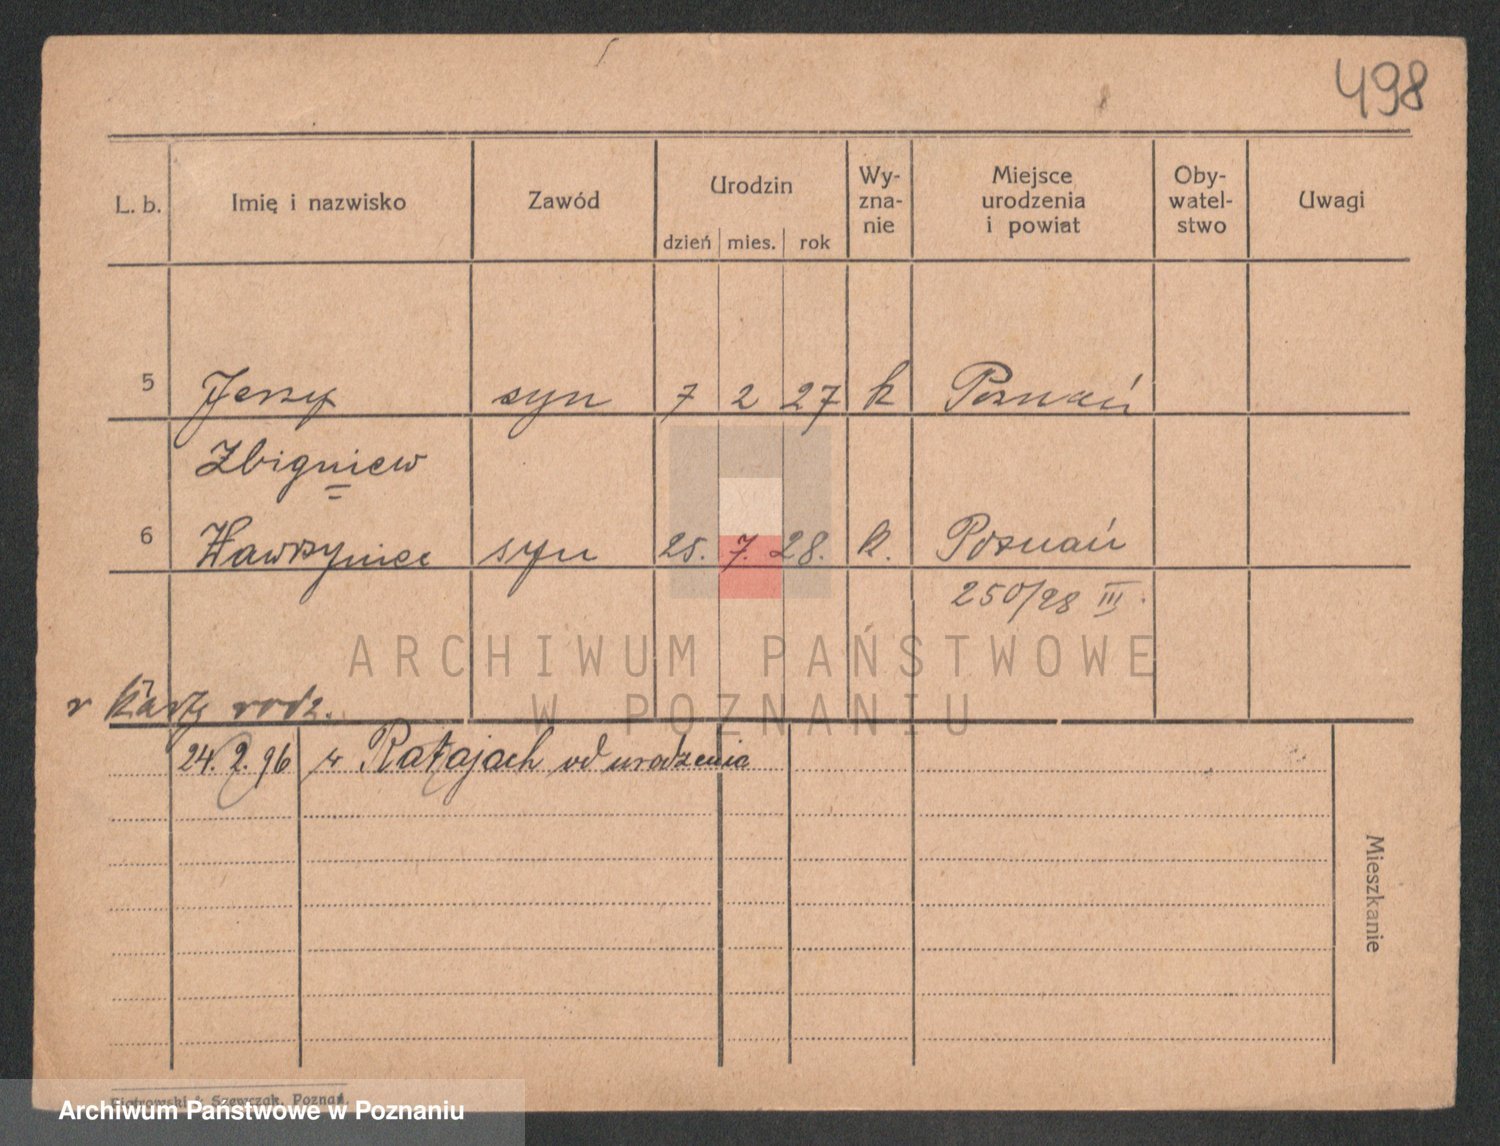 498
L. b. Imię i nazwisko Zawód Urodzin Wy-zna-nie Miejsce urodzenia i powiat Oby-watel-stwo Uwagi
dzień mies. rok
5 Jerzy syn 7 2 27 k Poznań
Zbigniew
6 Wawrzyniec syn 25. 7. 28. k. Poznań
250/28 III.
ARCHIWUM PAŃSTWOWE
W POZNANIU
r Karty rodz.
24. 2. 96 w Ratajach od urodzenia
Mieszkanie
Piotrowski & Szewczak, Poznań.
Archiwum Państwowe w Poznaniu